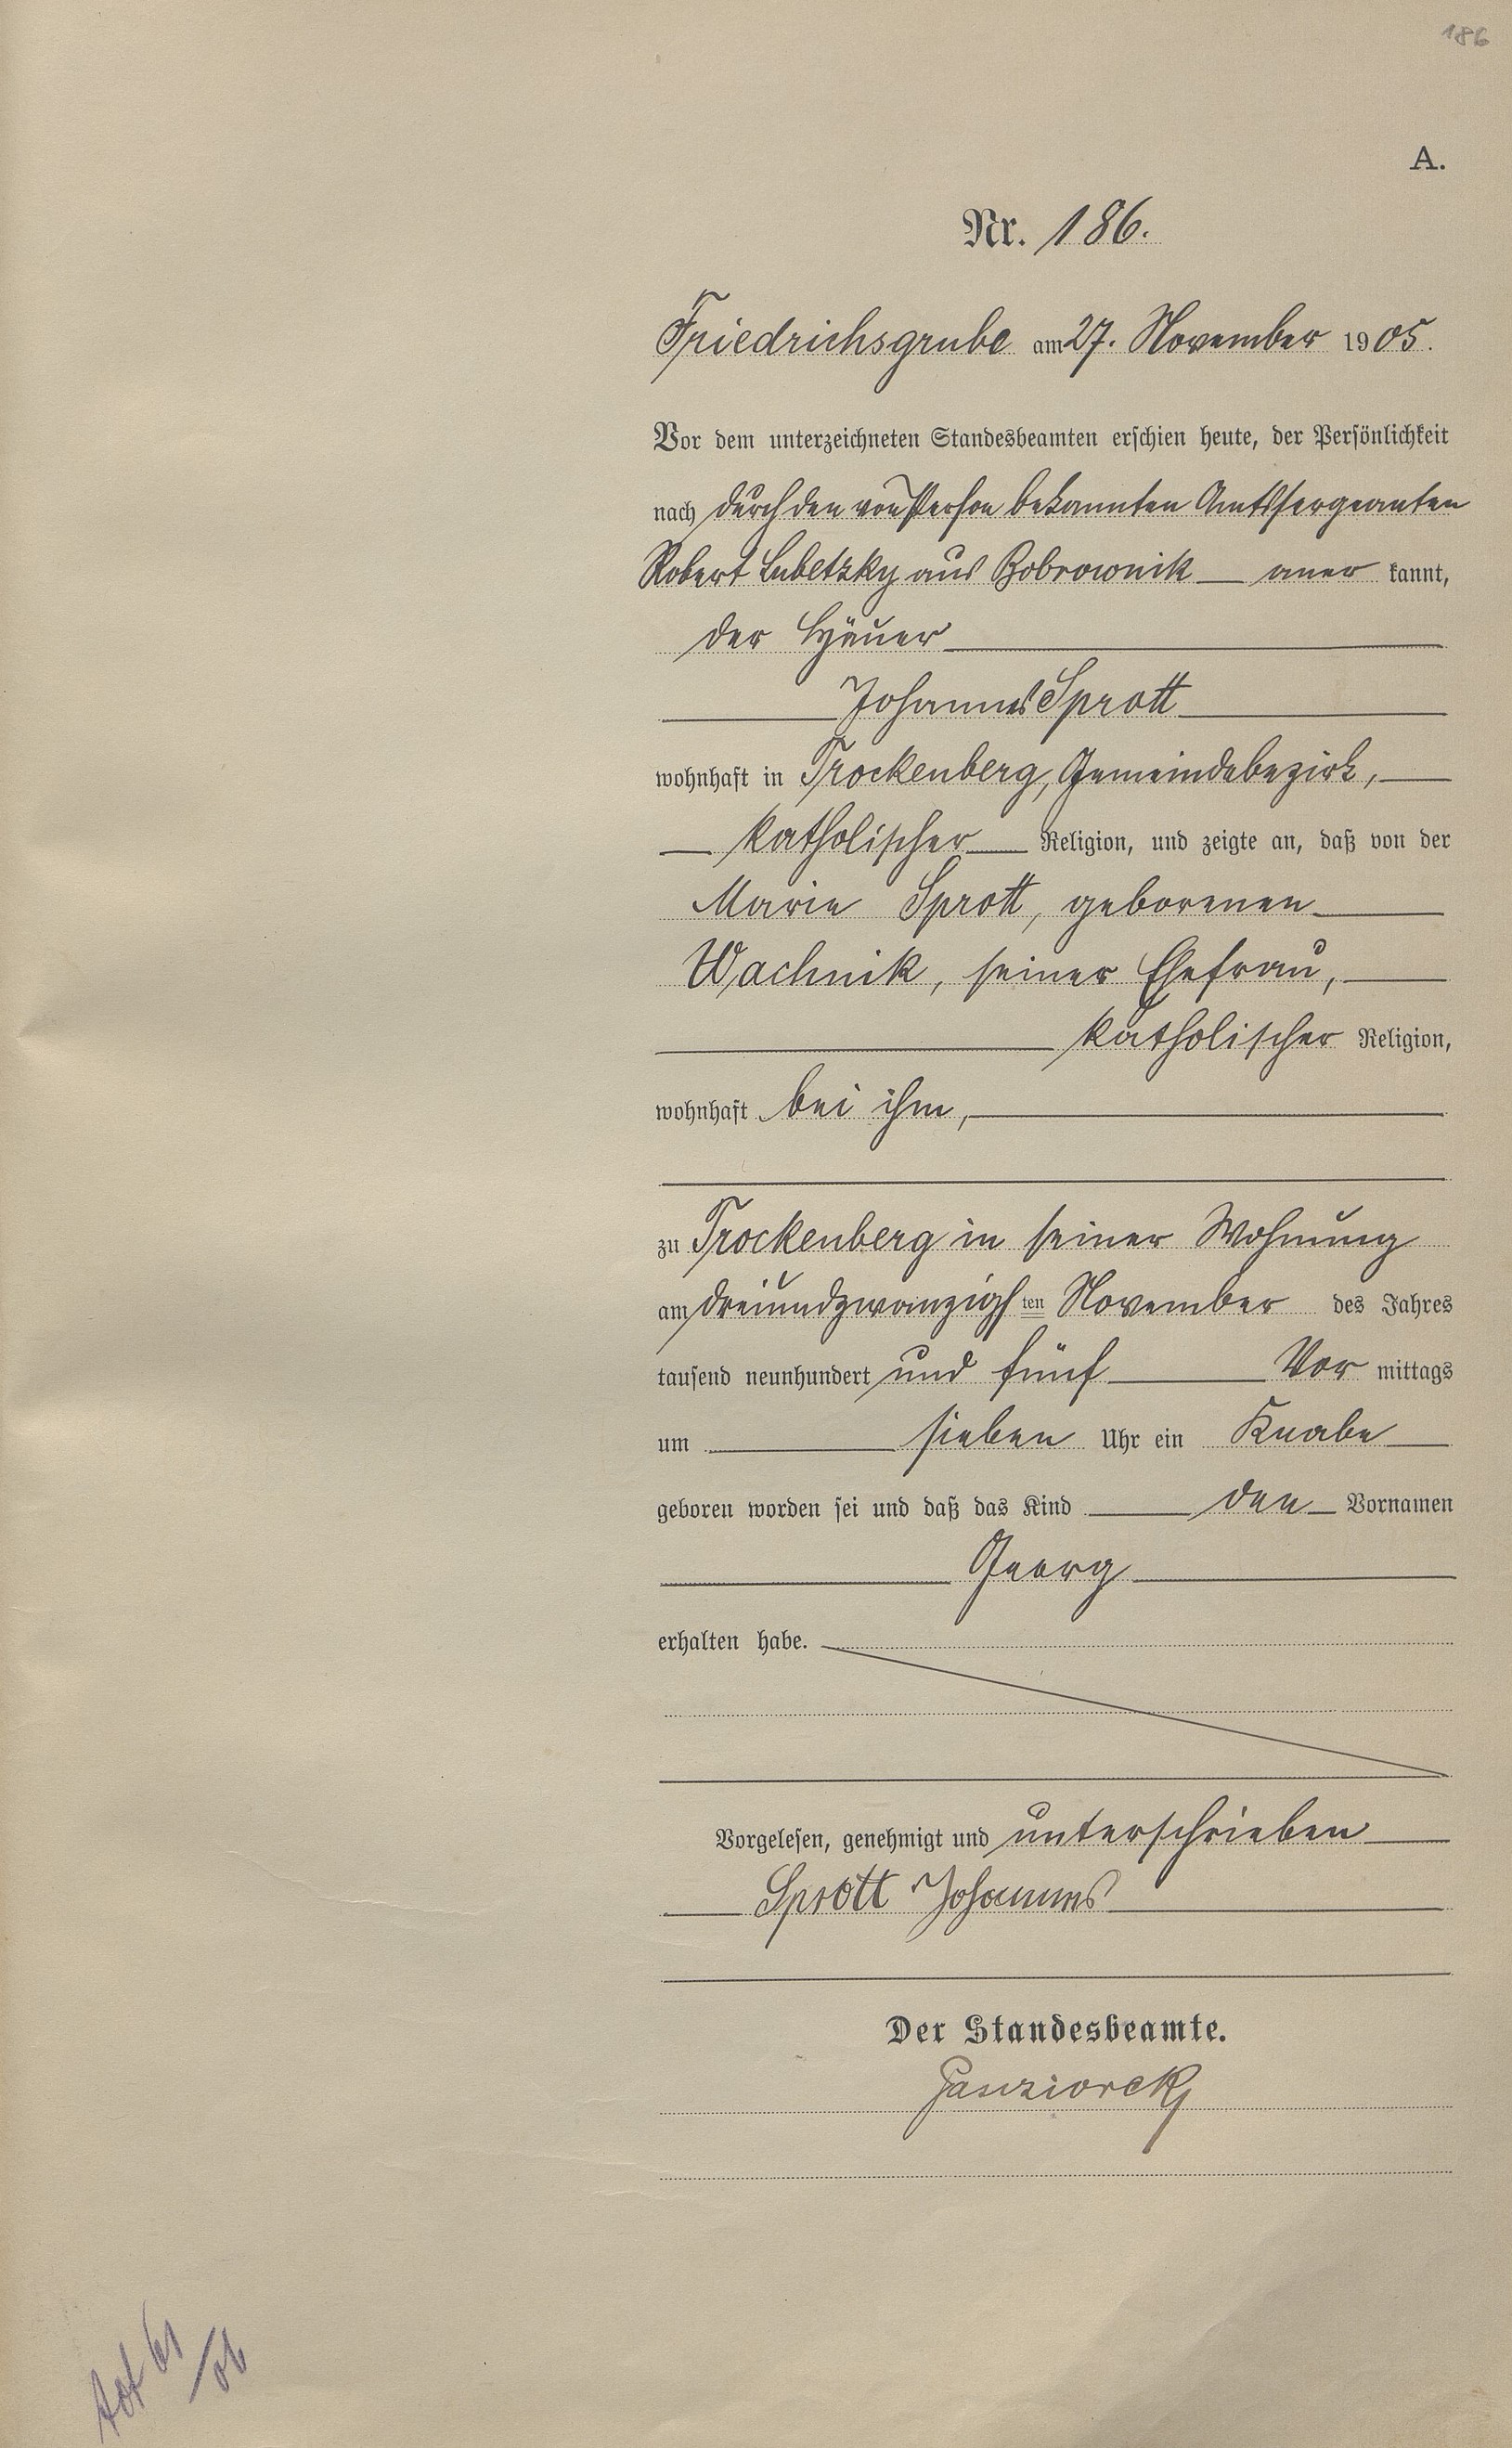 186
A.
Nr. 186.
Friedrichsgrube am 27. November 1905.
Vor dem unterzeichneten Standesbeamten erschien heute, der Persönlichkeit
nach durch den von Person bekannten Amtssergeanten
Robert Lubetzky aus Bobrownik — aner kannt,
der Häuer
Johannes Sprott
wohnhaft in Trockenberg, Gemeindebezirk,
katholischer Religion, und zeigte an, daß von der
Marie Sprott, geborenen
Wachnik, seiner Ehefrau,
katholischer Religion,
wohnhaft bei ihm,
zu Trockenberg in seiner Wohnung
am dreiundzwanzigs ten November des Jahres
tausend neunhundert und fünf Vor mittags
um sieben Uhr ein Knabe
geboren worden sei und daß das Kind den Vornamen
Georg
erhalten habe.
Vorgelesen, genehmigt und unterschrieben
Sprott Johannes
Der Standesbeamte.
tot 61/06